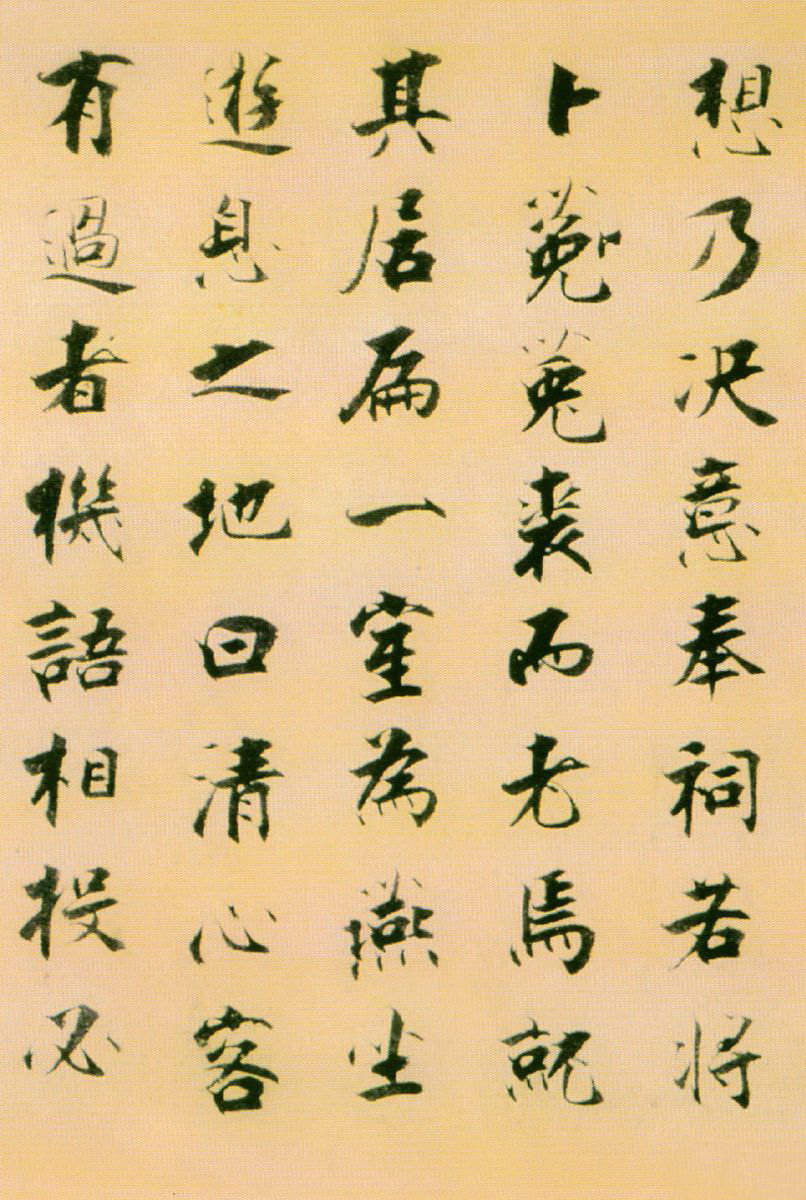 想乃决意奉祠若将
卜菟菟裘而老焉就
其居扁一室為燕坐
遊息之地曰清心客
有過者機語相投必